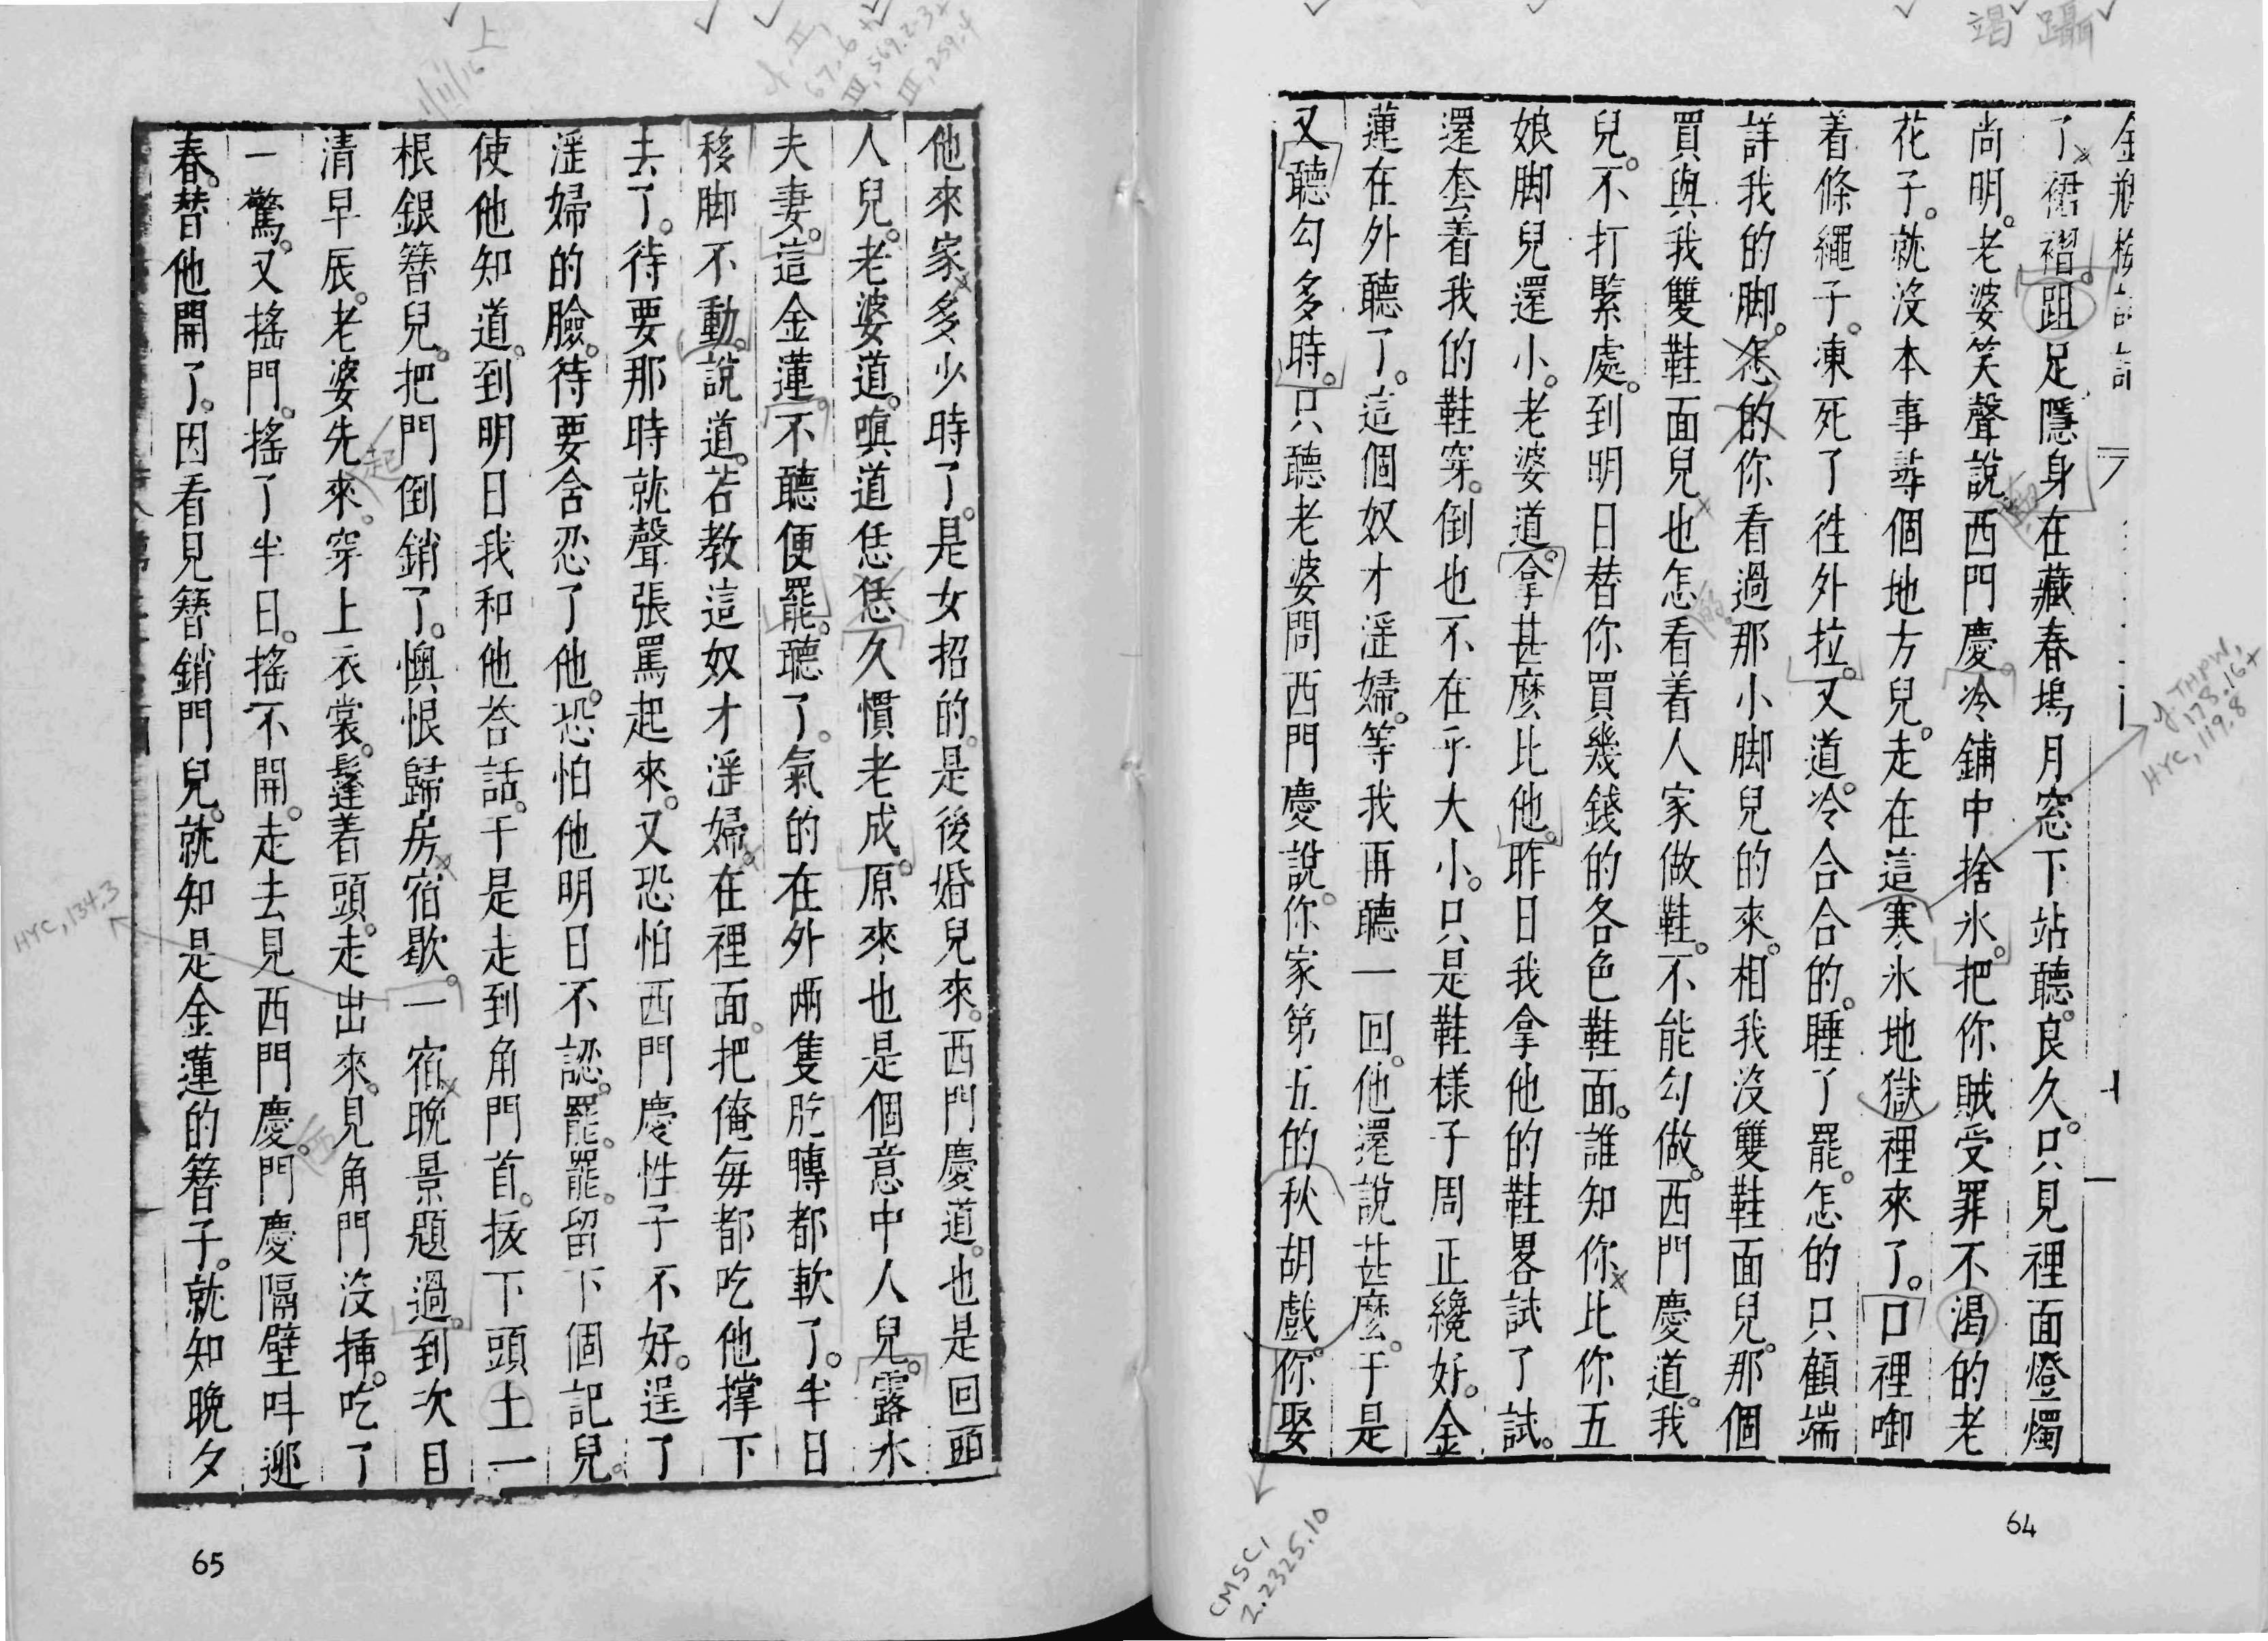 竭 躡
金瓶梅詞話
了裙褶。跙足隱身在藏春塢月窓下站聽。良久。只見裡面燈燭
尚明。老婆笑聲說。西門慶。冷鋪中捨氷。把你賊受罪不渴的老
花子。就沒本事尋個地方兒。走在這寒氷地獄裡來了。口裡啣
着條繩子。凍死了往外拉。又道。冷合合的。睡了罷。怎的只顧端
詳我的脚。怎的你看過那小脚兒的來。相我沒雙鞋面兒。那個
買與我雙鞋面兒也怎看着人家做鞋。不能勾做。西門慶道。我
兒。不打緊處。到明日替你買幾錢的各色鞋面。誰知你比你五
娘脚兒還小。老婆道。拿甚麽比他。昨日我拿他的鞋畧試了試。
還套着我的鞋穿。倒也不在乎大小。只是鞋樣子周正纔好。金
蓮在外聽了。這個奴才淫婦。等我再聽一回。他還說甚麽。于是
又聽勾多時。只聽老婆問西門慶說。你家第五的秋胡戲。你娶
J. THPW, 178.16+
HYC, 119.8
CMSC, 1
2.2325.10
64
上
11/11/16
67.6+
III, 569.2-3+
III, 259.4
他來家多少時了。是女招的。是後婚兒來。西門慶道。也是回頭
人兒。老婆道。嗔道恁恁久慣老成。原來也是個意中人兒。露水
夫妻。這金蓮。不聽便罷。聽了。氣的在外兩隻肐膊都軟了。半日
移脚不動。說道。若教這奴才淫婦在裡面。把俺每都吃他撑下
去了。待要那時就聲張罵起來。又恐怕西門慶性子不好。逞了
淫婦的臉。待要含忍了他。恐怕他明日不認。罷。罷。留下個記兒。
使他知道。到明日我和他荅話。于是走到角門首。拔下頭土一
根銀簪兒。把門倒銷了。懊恨歸房宿歇。一宿晚景題過。到次日
清早辰。老婆先來。穿上衣裳。鬔着頭。走出來。見角門沒揷。吃了
一驚。又搖門。搖了半日。搖不開。走去見西門慶。門慶隔壁呌迎
春。替他開了。因看見簪銷門兒。就知是金蓮的簪子。就知晚夕
起
HYC, 134.3
65